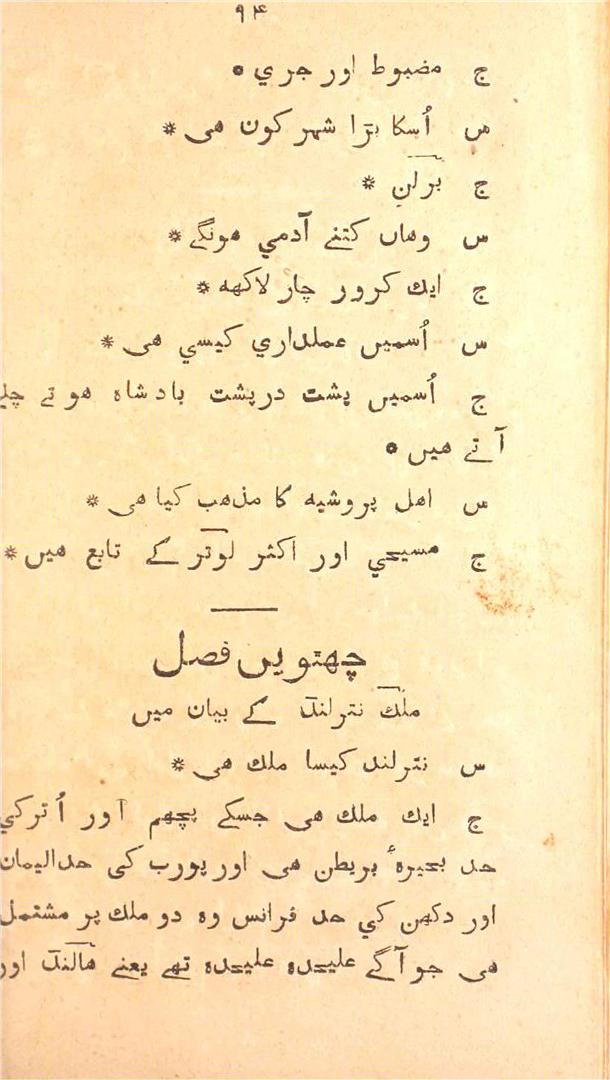 ۹۴
ج مضبوط اور جري *
س اُسکا بڑا شهر کون هی *
ج برلن *
س وهاں کتنے آدمي هونگے *
ج ایك کرور چار لاکهه *
س اُسمیں عملداري کیسي هی *
ج اُسمیں پشت درپشت بادشاه هوتے چلے
آتے هیں *
س اهل پروشیه کا مذهب کیا هی *
ج مسیحي اور اکثر لوتر کے تابع هیں *
چهتویں فصل
ملك نترلنڈ کے بیان میں
س نترلند کیسا ملك هی *
ج ایك ملك هی جسکے پچهم اور اُترکي
حد بحیرهٔ بریطن هی اور پورب کی حد الیمان
اور دکهن کي حد فرانس وه دو ملك پر مشتمل
هی جو آگے علیحده علیحده تهے یعنے هالنڈ اور